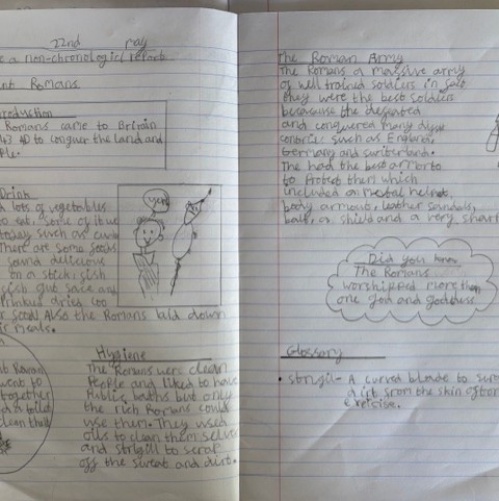 22nd may
e a non-chronological report
nt Romans.
Introduction
Romans came to Britain
43 AD to conquer the land and
ple.
Drink
lots of vegetables
to eat. Some of it we
today such as
There are some foods
sound delicious
on a stick, fish
fish guts sauce and
dried
food Also the Romans laid down
ir meals.
yes
Roman
went to
together
a toilet
clean that
Hygiene
The Romans were clean
People and liked to have
Public baths but only
the rich Romans could
use then. They used
oils to clean them selves
and strigill to scrap
off the sweat and dirt.
The Roman Army
The Romans a massive army
of well trained soldiers in fact
they were the best soldiers
because the
and conquered many
such as England
Germany and switerland.
The had the best armor to
to Protect them which
included a metal helmet,
body armour, leather sandals,
a shield and a very sharp
Did you know
The Romans
worshipped more than
one god and goddess.
Glossary
• strigil- A curved blade to
dirt from the skin after
exercise.